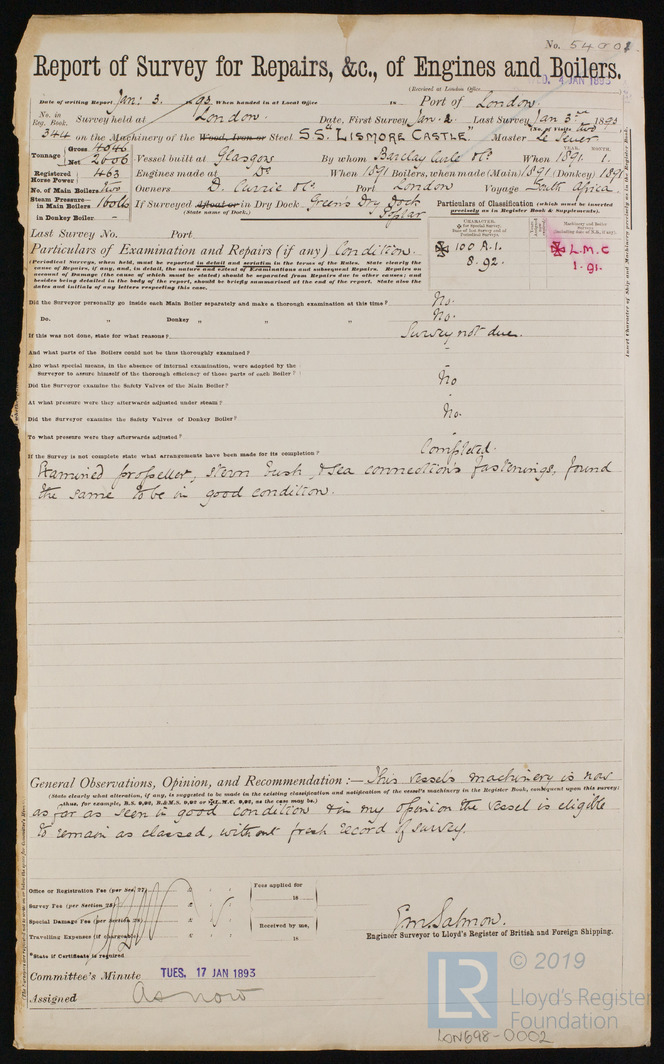 No. 54001
Report of Survey for Repairs, &c., of Engines and Boilers.
(Received at London Office
4 JAN 1893
Date of writing Report Jan: 3. 1893 When handed in at Local Office 18 Port of London.
No. in Reg. Book. Survey held at London. Date, First Survey Jan. 2. Last Survey Jan 3rd 1893
(No. of Visits two)
344 on the Machinery of the Wood, Iron or Steel S.S. "LISMORE CASTLE" Master Le Sueur
Tonnage Gross 4046
Net 2606
Vessel built at Glasgow By whom Barclay Curle & Co. When 1891. 1.
YEAR. MONTH.
Registered Horse Power 463 Engines made at Do When 1891 Boilers, when made (Main) 1891 (Donkey) 1891
No. of Main Boilers two Owners D. Currie & Co. Port London Voyage South Africa
Steam Pressure in Main Boilers 160 lbs If Surveyed Afloat or in Dry Dock Green's Dry Dock
Poplar
(State name of Dock.)
in Donkey Boiler -
Particulars of Classification (which must be inserted precisely as in Register Book & Supplements).
Last Survey No. Port
CHARACTER.
100 A.1.
8.92.
L.M.C
1.91.
Insert Character of Ship and Machinery precisely as in the Register Book.
Particulars of Examination and Repairs (if any) Condition.
(Periodical Surveys, when held, must be reported in detail and seriatim in the terms of the Rules. State clearly the
cause of Repairs, if any, and, in detail, the nature and extent of Examinations and subsequent Repairs. Repairs on
account of Damage (the cause of which must be stated) should be separated from Repairs due to other causes; and
besides being detailed in the body of the report, should be briefly summarised at the end of the report. State also the
dates and initials of any letters respecting this case.
Did the Surveyor personally go inside each Main Boiler separately and make a thorough examination at this time? No.
Do. " Donkey " " " No.
If this was not done, state for what reasons? Survey not due.
And what parts of the Boilers could not be thus thoroughly examined? -
Also what special means, in the absence of internal examination, were adopted by the
Surveyor to assure himself of the thorough efficiency of those parts of each Boiler? -
Did the Surveyor examine the Safety Valves of the Main Boiler? No
At what pressure were they afterwards adjusted under steam? -
Did the Surveyor examine the Safety Valves of Donkey Boiler? No.
To what pressure were they afterwards adjusted? -
If the Survey is not complete state what arrangements have been made for its completion? Completed.
Examined propeller, stern bush, & sea connections fastenings, found
the same to be in good condition.
General Observations, Opinion, and Recommendation:— This vessel's machinery is now
(State clearly what alteration, if any, is suggested to be made in the existing classification and notification of the vessel's machinery in the Register Book, consequent upon this survey;
thus, for example, B.S. 9,92, B.&M.S. 9,92 or L.M.C. 9,92, as the case may be.)
as far as seen in good condition & in my opinion the vessel is eligible
to remain as classed, without fresh record of survey.
Office or Registration Fee (per Sec. 27) £ : :
Survey Fee (per Section 28) £ : :
Special Damage Fee (per Section 28) £ : :
Travelling Expenses (if chargeable) £ : :
Fees applied for
18
Received by me,
18
*State if Certificate is required
E.W. Salmon.
Engineer Surveyor to Lloyd's Register of British and Foreign Shipping.
Committee's Minute TUES. 17 JAN 1893
Assigned As now
LR
© 2019
Lloyd's Register
Foundation
LON698-0002